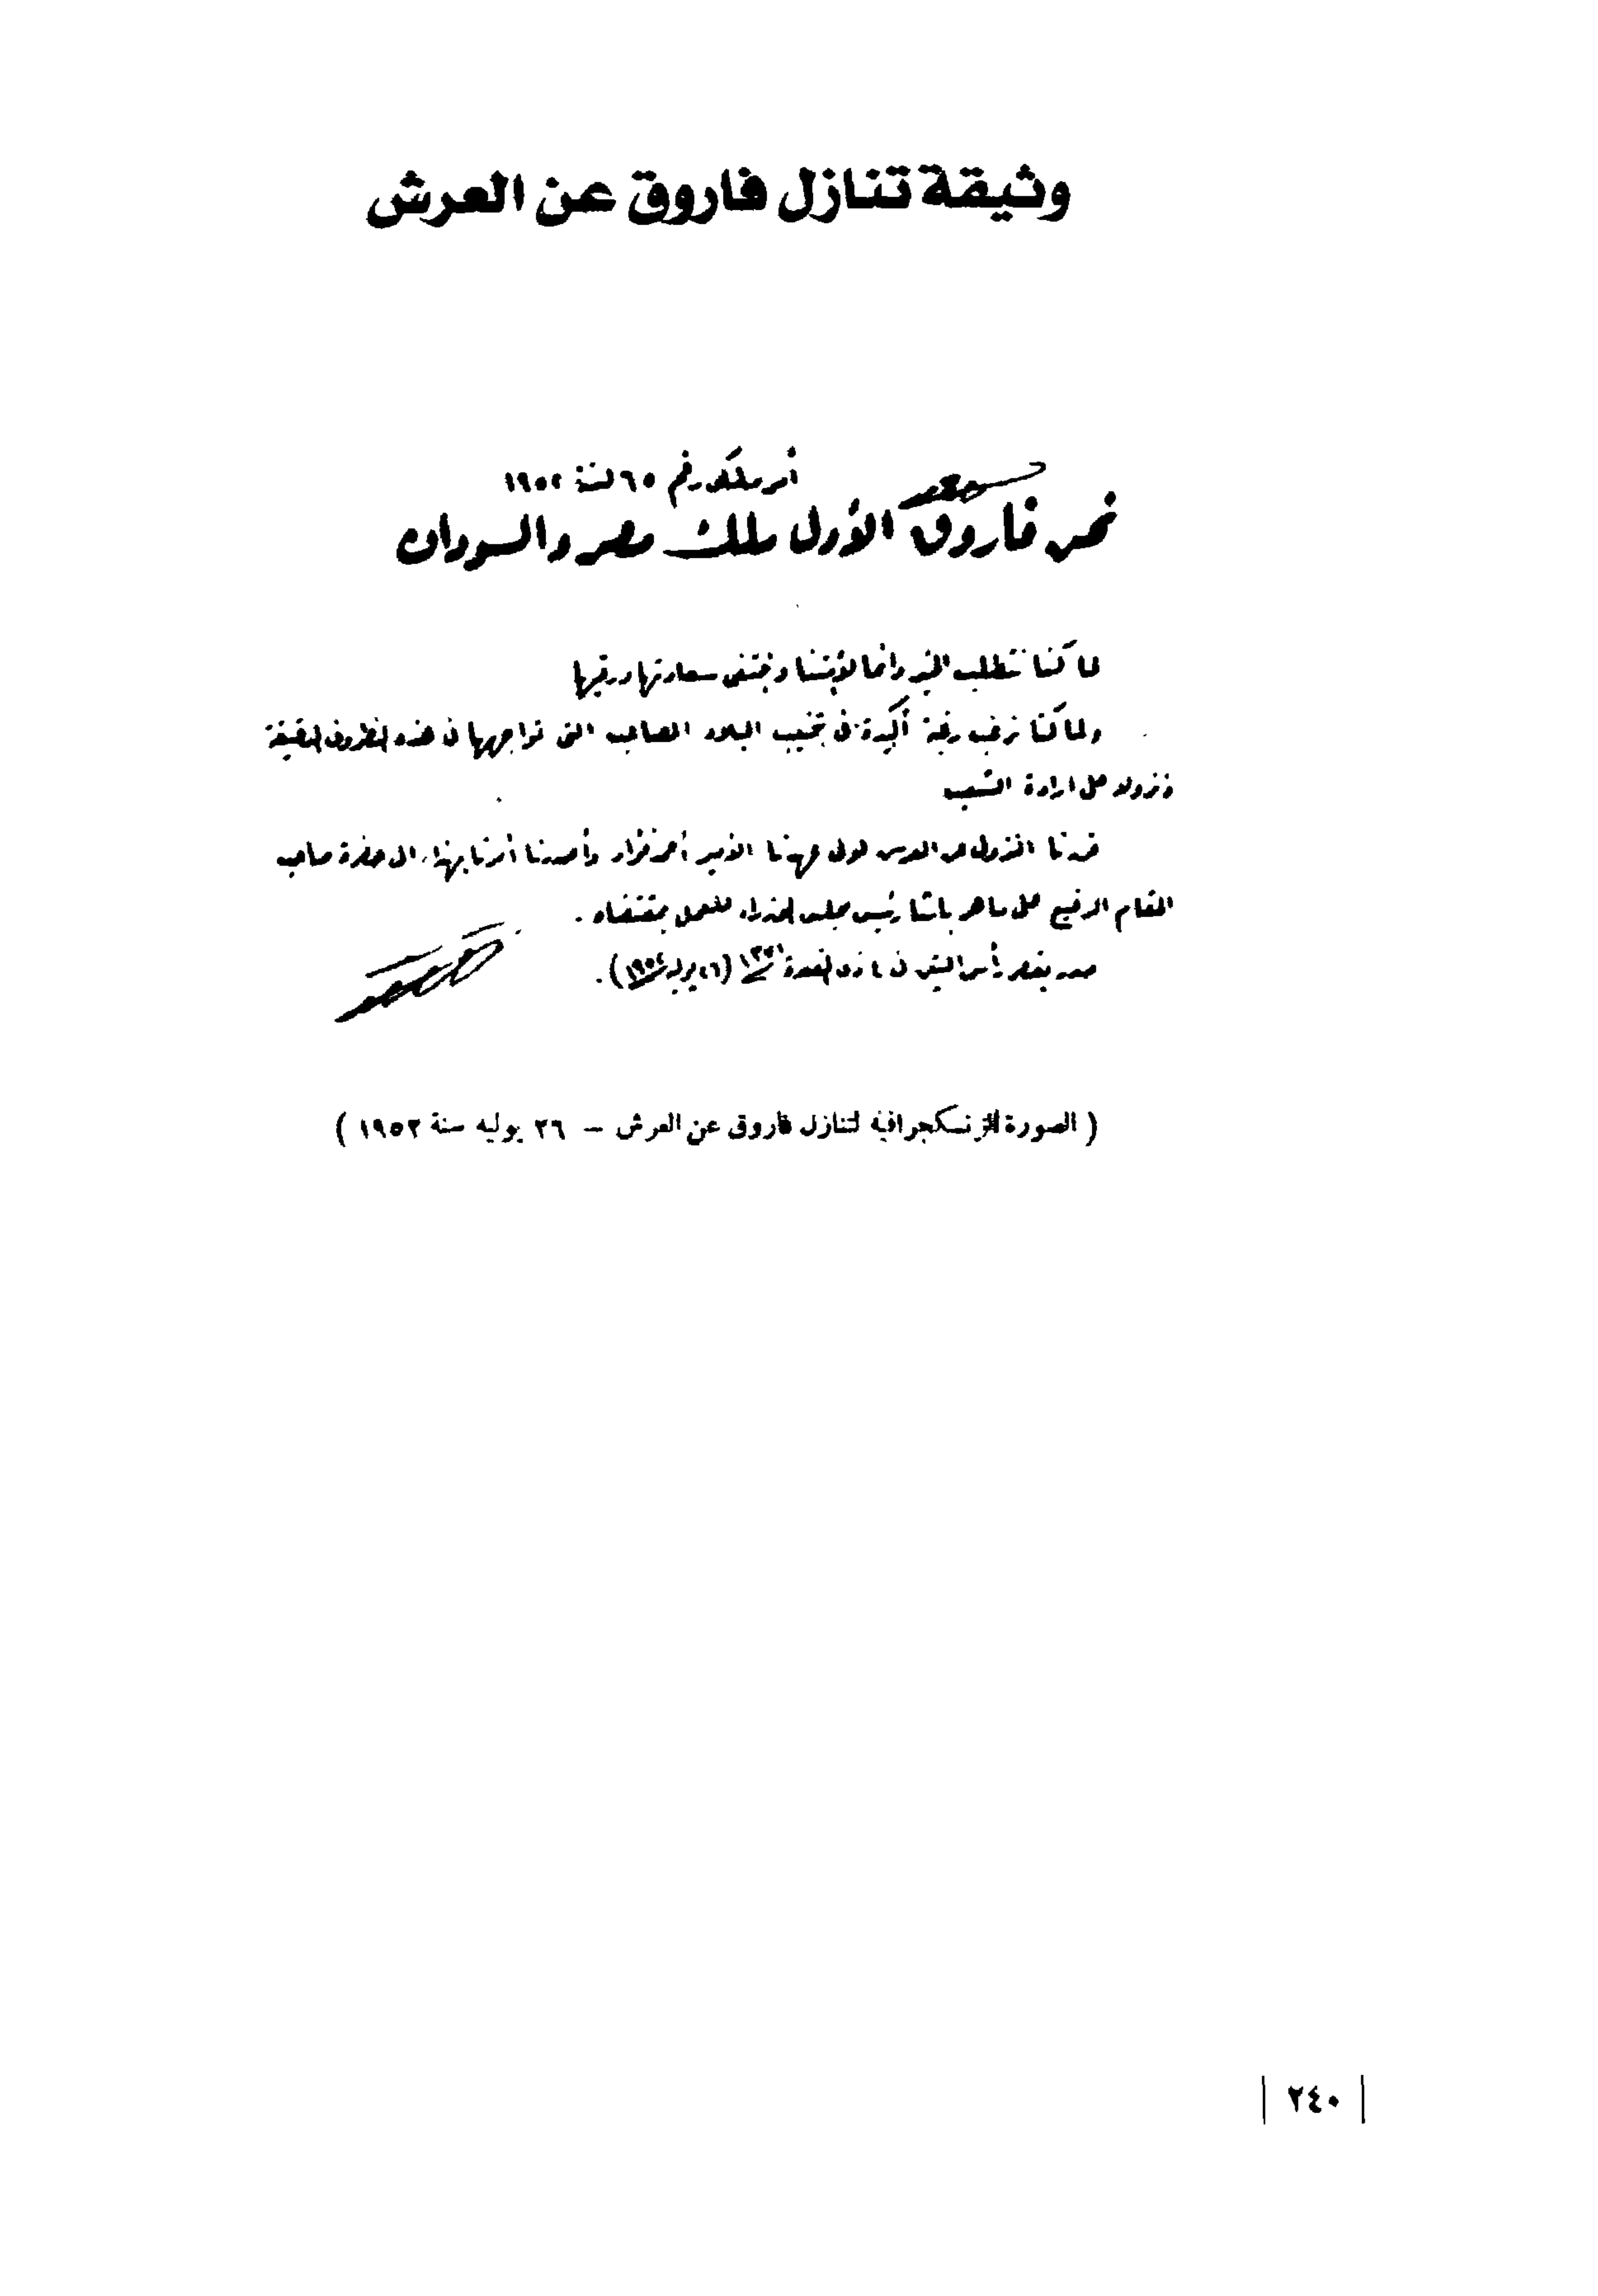 وثيقة تنازل فاروق عن العرش
أمر ملكى رقم ٦٥ لسنة ١٩٥٢
نحن فاروق الأول ملك مصر والسودان
لما كنا نتطلب الخير دائما لأمتنا ونبتغى سعادتها ورقيها
ولما كنا نرغب رغبة أكيدة فى تجنيب البلاد المصاعب التى تواجهها فى هذه الظروف الدقيقة
ونزولا على ارادة الشعب
قررنا النزول عن العرش لولى عهدنا الأمير أحمد فؤاد وأصدرنا أمرنا بهذا الى حضرة صاحب
المقام الرفيع على ماهر باشا رئيس مجلس الوزراء للعمل بمقتضاه .
صدر بقصر رأس التين فى ٤ ذى القعدة ١٣٧١ (٢٦ يوليه ١٩٥٢) .
( الصورة الزنكجرافية لتنازل فاروق عن العرش – ٢٦ يوليه سنة ١٩٥٢ )
٢٤٠